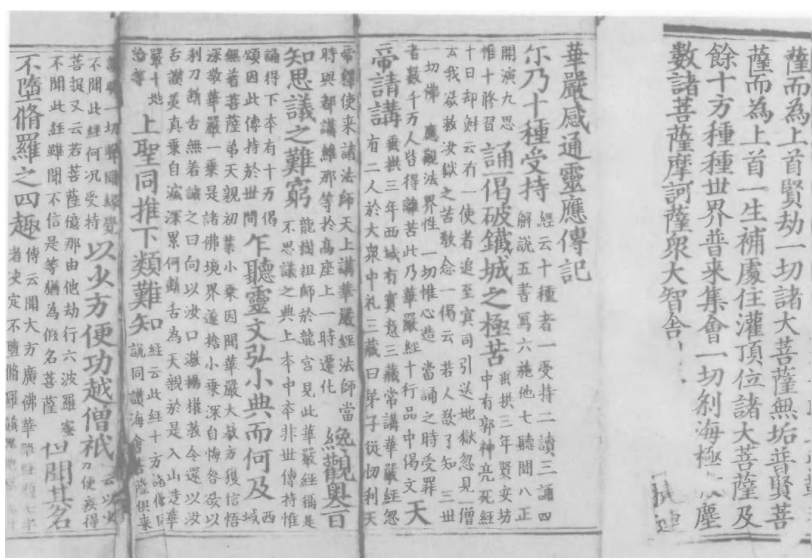 薩而為上首賢劫一切諸大菩薩無垢普賢菩
薩而為上首一生補處住灌頂位諸大菩薩及
餘十方種種世界普来集會一切剎海極塵
數諸菩薩摩訶薩衆大智舍
華嚴感通靈應傳記
尓乃十種受持
經云十種者一受持二讀三誦四
解說五書寫六施他七聽聞八正
開演九思
惟十脩習
誦偈破鐵城之極苦
垂拱三年賢安坊
中有郭神亮死經
十日却穌云有一使者追至冥司引送地獄忽見一僧
云我欲救汝獄之苦教念一偈云若人欲了知三世
一切佛應觀法界性一切惟心造當誦之時受罪
者數千万人皆得離苦此乃華嚴經十行品中偈文
天
帝請講
垂拱三年西域有實三藏常講華嚴經忽
有二人於大衆中礼三藏曰弟子從忉利天
帝釋使来請法師天上講華嚴經法師當
時與都講維那等於高座上一時遷化
絶觀奧旨
知思議之難窮
龍樹祖師於龍宫見此華嚴經稱是
不思議之典上本中本非世傳持惟
誦得下本有十万偈
頌因此傳持於世間
乍聽靈文弘小典而何及
西
域
無着菩薩弟天親初業小乗因聞華嚴大教方獲信悟
深敬華嚴一乗是諸佛境界遂捨小乗深自悔咎欲以
利刀斷舌無着諫之曰向以汝口揚權教今還以汝
舌讃美真乗自滅深累何割舌為天親於是入山造華
嚴十地
論等
上聖同推下類難知
經云此經十方諸佛同
說同讃海會菩薩俱来
一切聲聞緣覺
不聞此經何况受持
以少方便功越僧祇
云以少
方便疾得
菩提又云若菩薩億那由他劫行六波羅蜜
不聞此經雖聞不信是等猶為假名菩薩
但聞其名
不墮脩羅之四趣
傳云聞大方廣佛華嚴經題七字
者史定不墮脩羅